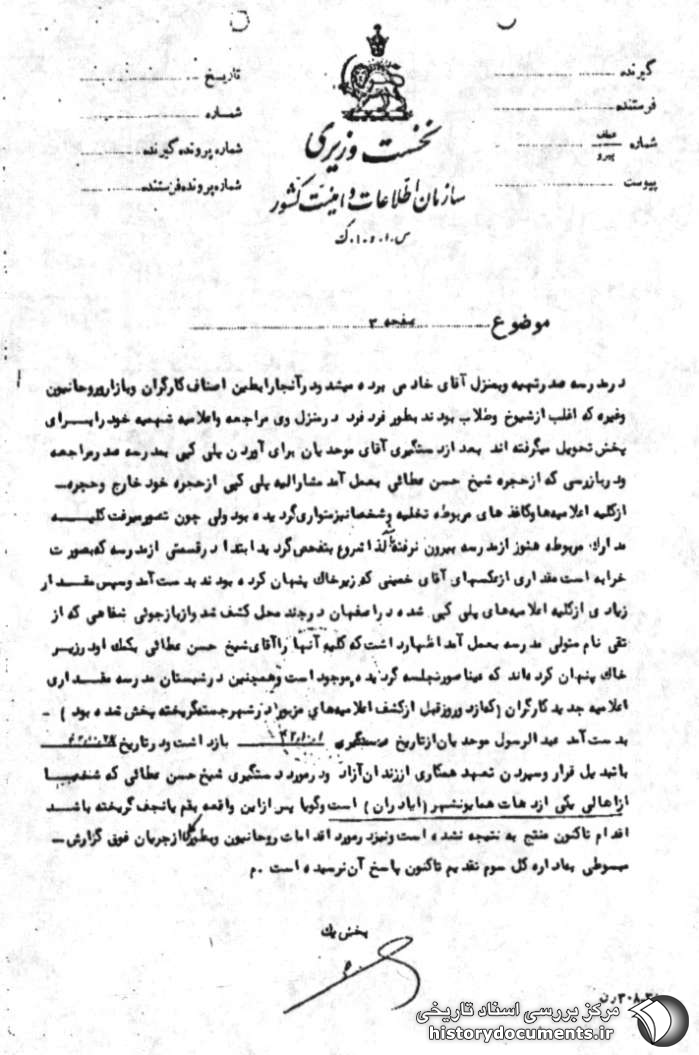 گیرنده
فرستنده
شماره عطف پیرو
پیوست
تاریخ
شماره
شماره پرونده گیرنده
شماره پرونده فرستنده
نخست وزیری
سازمان اطلاعات و امنیت کشور
س.ا.و.ا.ک
موضوع صفحه ۳
در مدرسه صدر تهیه و بمنزل آقای خادمی برده میشد و در آنجا رابطین اصناف کارگران و بازار و روحانیون
وغیره که اغلب از شیوخ و طلاب بودند بطور فرد فرد در منزل وی مراجعه و اعلامیه سهمیه خود را برای
پخش تحویل میگرفته اند بعد از دستگیری آقای موحدیان برای آوردن پلی کپی بمدرسه صدر مراجعه
و در بازرسی که از حجره شیخ حسن عطائی بعمل آمد مشارالیه پلی کپی از حجره خود خارج و حجره ـ
از کلیه اعلامیه ها و کاغذ های مربوطه تخلیه و شخصا نیز متواری گردیده بود ولی چون تصور میرفت کلیه
مدارك مربوطه هنوز از مدرسه بیرون نرفته لذا شروع بتفحص گردید ابتدا در قسمتی از مدرسه که بصورت
خرابه است مقداری از عکسهای آقای خمینی که زیر خاك پنهان کرده بودند بدست آمد و سپس مقدار
زیادی از کلیه اعلامیه های پلی کپی شده در اصفهان در چند محل کشف شد و از بازجوئی شفاهی که از
تقی نام متولی مدرسه بعمل آمد اظهار داشت که کلیه آنها را آقای شیخ حسن عطائی بکمك او در زیر
خاك پنهان کرده اند که عینا صورتجلسه گردیده موجود است و همچنین در شبستان مدرسه مقداری
اعلامیه جدید کارگران (که از دو روز قبل از کشف اعلامیه های مزبور در شهر جسته گریخته پخش شده بود) ـ
بدست آمد عبدالرسول موحدیان از تاریخ دستگیری بازداشت و در تاریخ
با تبدیل قرار و سپردن تعهد همکاری از زندان آزاد و در مورد دستگیری شیخ حسن عطائی که شخصا
از اهالی یکی از دهات همایونشهر (اباد ران) است و گویا پس از این واقعه بقم یا نجف گریخته باشد
اقدام تاکنون منتج به نتیجه نشده است و نیز در مورد اقدامات روحانیون و بطور کل از جریان فوق گزارش ـ
مبسوطی به اداره کل سوم تقدیم تاکنون پاسخ آن نرسیده است .م
بخش یك
مرکز بررسی اسناد تاریخی
historydocuments.ir